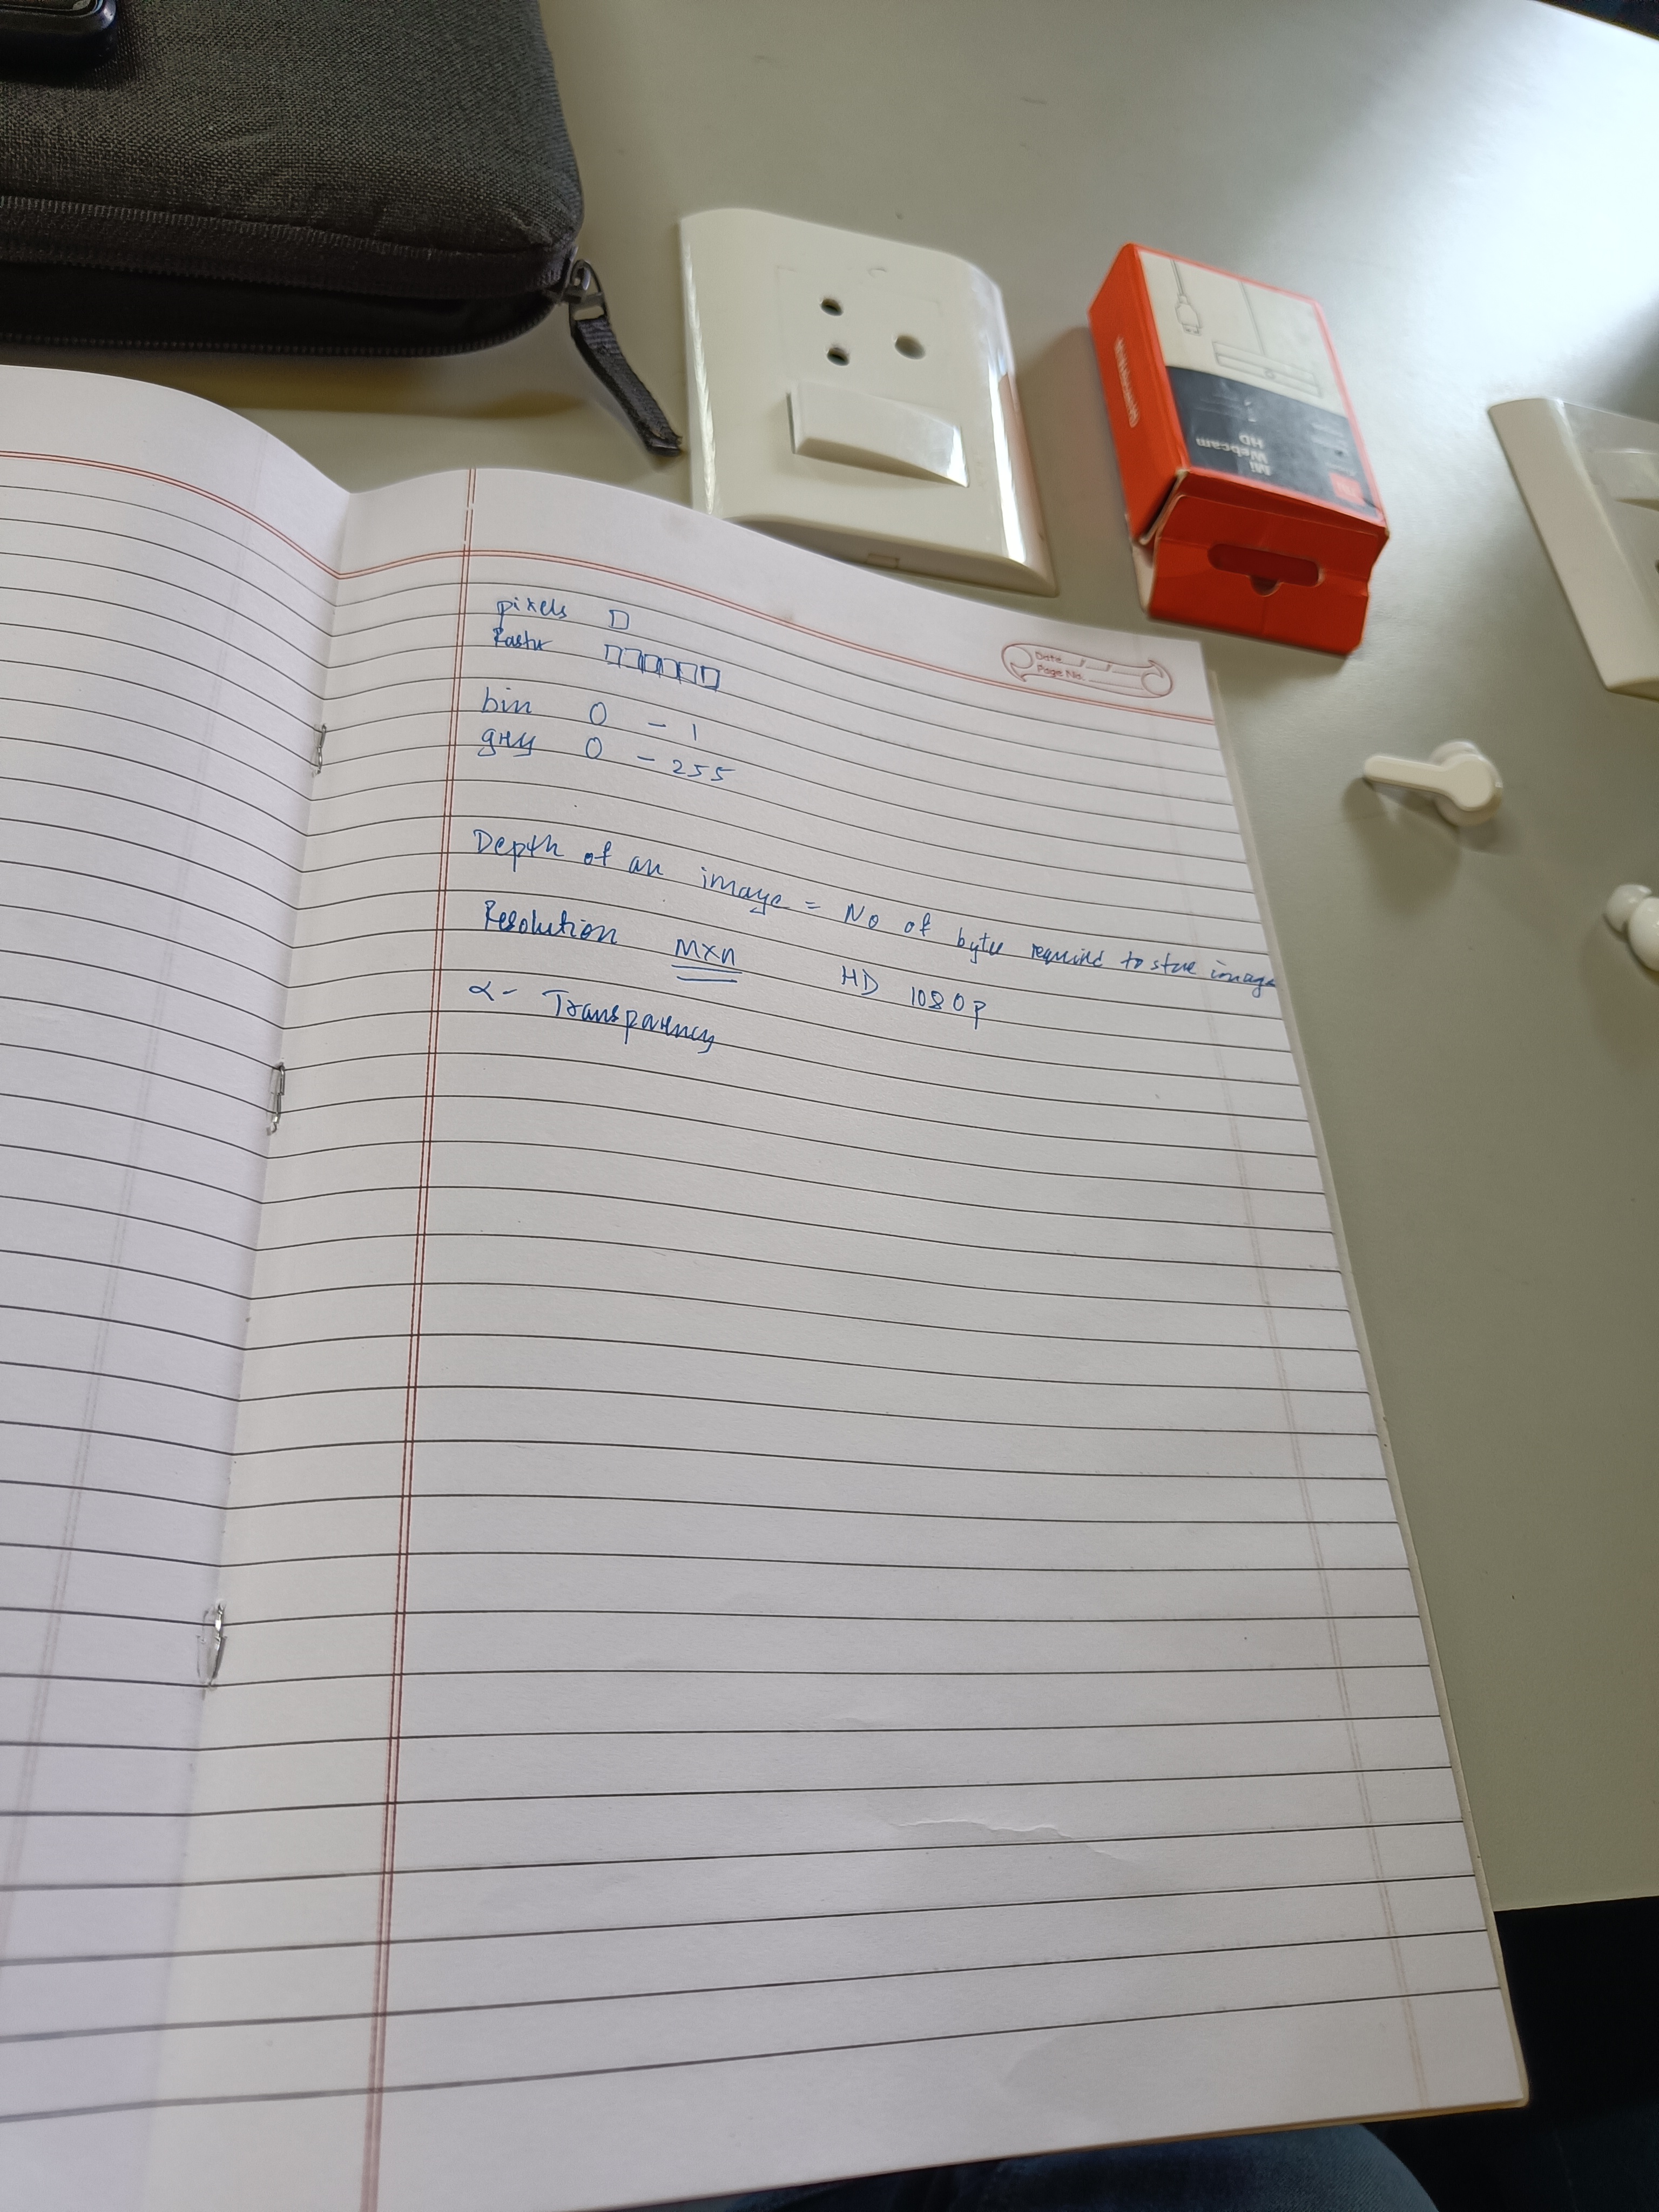 Mi
Webcam
HD
Date
Page No.
pixels
Raster
bin 0 - 1
grey 0 - 255
Depth of an image = No of bytes required to store image
Resolution mxn HD 1080p
α - Transparency